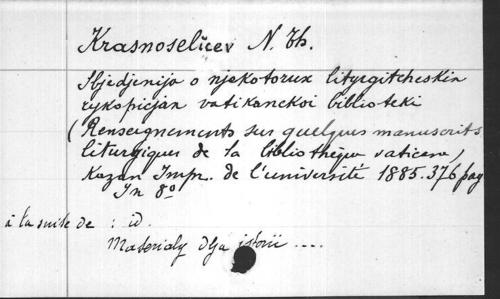 Krasnoselicev N. Th.
Sbjedjenija o njekotorux liturgitcheskix
rykopicjax vatikanckoi biblioteki
(Renseignements sur quelques manuscrits
liturgiques de la bibliothèque vaticane)
Kazan Impr. de l'université 1885. 376 pag
In 8º
à la suite de : id.
Materialy dlja istorii ....